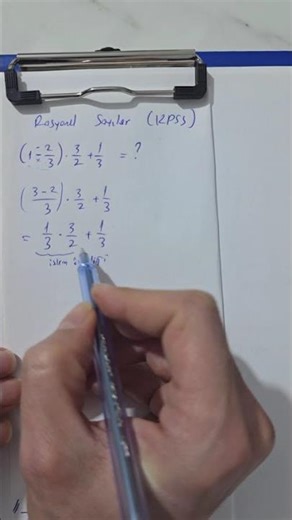 Rasyonel Sayılar (KPSS)
(1 - 2/3) · 3/2 + 1/3 = ?
((3-2)/3) · 3/2 + 1/3
= 1/3 · 3/2 + 1/3
işlem